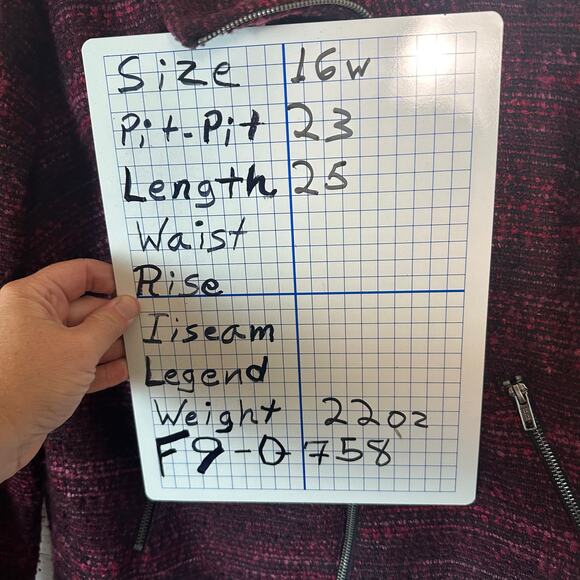 Size 16w
Pit-Pit 23
Length 25
Waist
Rise
Iiseam
Legend
Weight 22oz
F9-0758